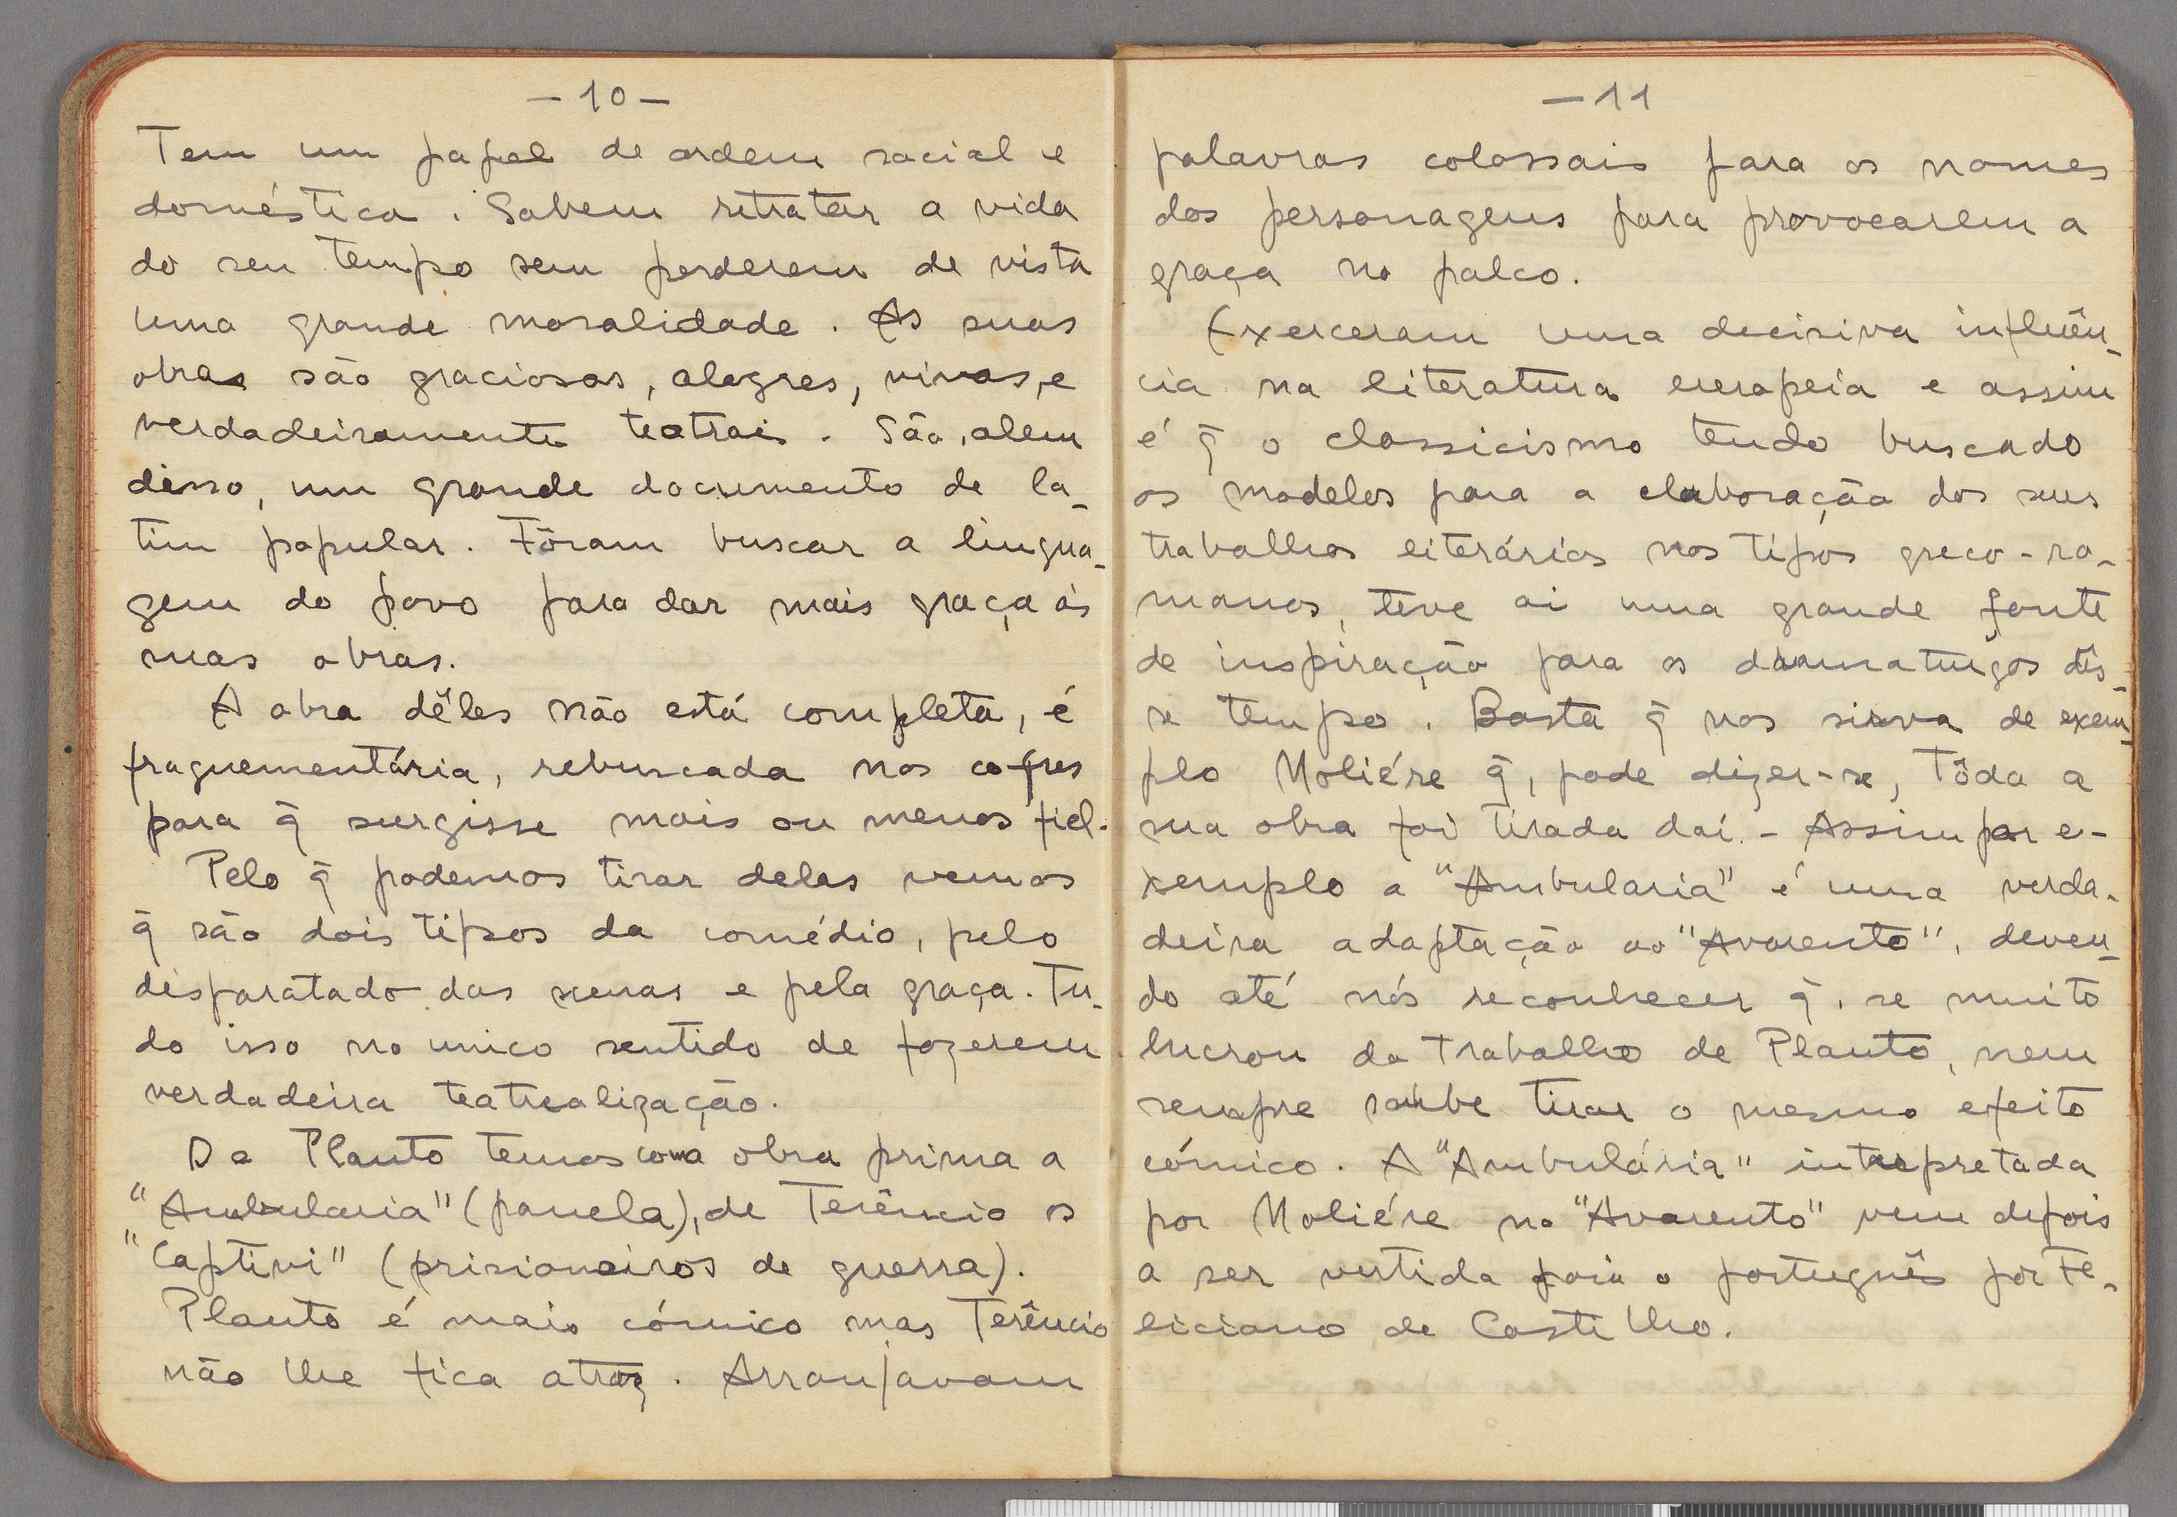 — 10 —
Tem um papel de ordem social e
doméstica. Sabem retratar a vida
do seu tempo sem perderem de vista
uma grande moralidade. As suas
obras são graciosas, alegres, vivas, e
verdadeiramente teatrais. São, alem
disso, um grande documento de la-
tim popular. Fôram buscar a lingua-
gem do povo para dar mais graça ás
suas obras.
A obra dêles não está completa, é
fraguementária, rebuscada nos cofres
para q̃ surgisse mais ou menos fiel.
Pelo q̃ podemos tirar deles vemos
q̃ são dois tipos da comédio, pelo
disparatado das scenas e pela graça. Tu-
do isso no unico sentido de fazerem
verdadeira teatrealização.
De Plauto temos como obra prima a
"Ambularia" (panela), de Terêncio os
"Captivi" (prisioneiros de guerra).
Plauto é mais cómico mas Terêncio
não lhe fica atraz. Arranjavam
— 11
palavras colossais para os nomes
dos personagens para provocarem a
graça no palco.
Exerceram uma decisiva influên-
cia na literatura europeia e assim
é q̃ o classicismo tendo buscado
os modelos para a elaboração dos seus
trabalhos literários nos tipos greco-ro-
manos, teve ai uma grande fonte
de inspiração para os dramaturgos dês-
se tempo. Basta q̃ nos sirva de exem-
plo Moliére q̃, pode dizer-se, tôda a
sua obra foi tirada daí. - Assim por e-
xemplo a "Ambularia" é uma verda-
deira adaptação ao "Avarento", deven-
do até nós reconhecer q̃, se muito
lucrou do trabalho de Plauto, nem
sempre soube tirar o mesmo efeito
cómico. A "Ambulária" interpretada
por Moliére no "Avarento" vem depois
a ser vertida para o português por Fe-
liciano de Castilho.